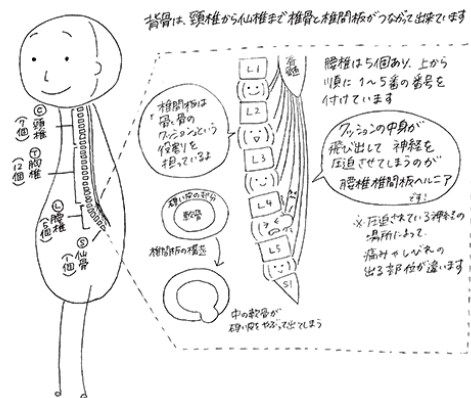 背骨は、頸椎から仙椎まで椎骨と椎間板がつながって出来ています
C
頸椎
(7個)
T
胸椎
(12個)
L
腰椎
(5個)
S
仙骨
(1個)
椎間板は
骨と骨の
クッションという
役割りを
担っているよ
硬い皮の部分
軟骨
椎間板の構造
中の軟骨が
硬い皮をやぶって出てしまう
L1
L2
L3
L4
L5
S1
脊髄
腰椎は5個あり、上から
順に1〜5番の番号を
付けています
クッションの中身が
飛び出して神経を
圧迫させてしまうのが
腰椎椎間板ヘルニア
です!
※圧迫されている神経の
場所によって、
痛みやしびれの
出る部位が違います